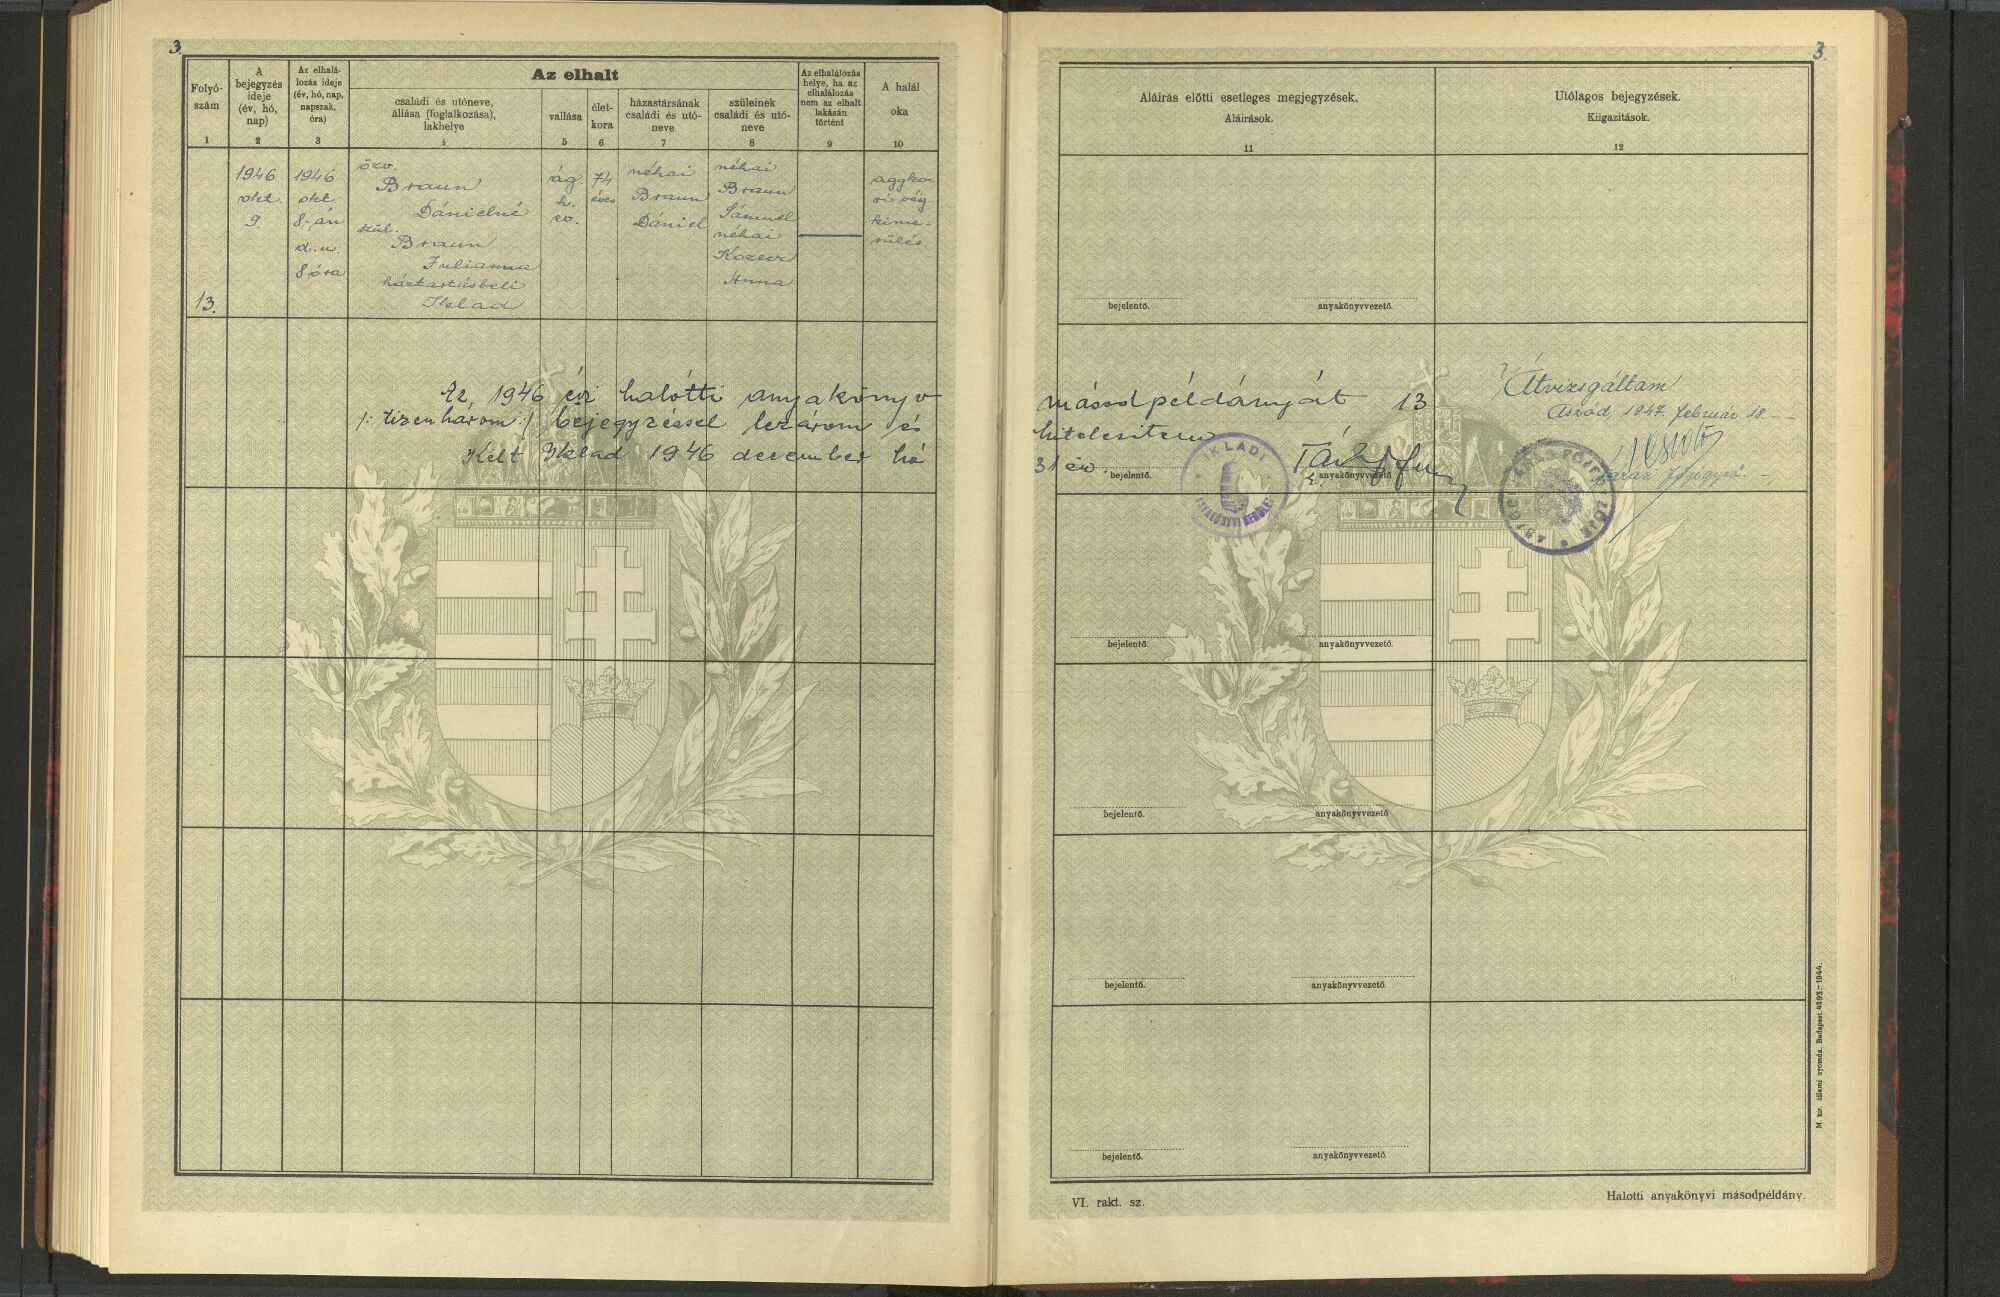 3.
Folyó-
szám
1
A
bejegyzés
ideje
(év, hó,
nap)
2
Az elhalá-
lozás ideje
(év, hó, nap,
napszak,
óra)
3
Az elhalt
családi és utóneve,
állása (foglalkozása),
lakhelye
4
vallása
5
élet-
kora
6
házastársának
családi és utó-
neve
7
szüleinek
családi és utó-
neve
8
Az elhalálozás
helye, ha az
elhalálozás
nem az elhalt
lakásán
történt
9
A halál
oka
10
13.
1946
okt.
9.
1946
okt
8-án
d.u.
8 óra
özv.
Braun
Dánielné
szül.
Braun
Julianna
háztartásbeli
Iklad
ág.
h.
ev.
74
éves
néhai
Braun
Dániel
néhai
Braun
Sámuel
néhai
Anna
aggko-
ri vég-
kime-
rülés
Az 1946 évi halotti anyakönyv
/: tizenhárom :/ bejegyzéssel lezárom és
Kelt Iklad 1946 december hó
3.
Aláírás előtti esetleges megjegyzések.
Aláírások.
11
Utólagos bejegyzések.
Kiigazítások.
12
bejelentő.
anyakönyvvezető.
másodpéldányát 13
hitelesitem
31 én
bejelentő.
anyakönyvvezető.
IKLADI
Átvizsgáltam
Aszód, 1947. február 18.
bejelentő.
anyakönyvvezető.
bejelentő.
anyakönyvvezető
bejelentő.
anyakönyvvezető.
bejelentő.
anyakönyvvezető.
VI. rakt. sz.
Halotti anyakönyvi másodpéldány.
M. kir. állami nyomda. Budapest 4393.-1944.